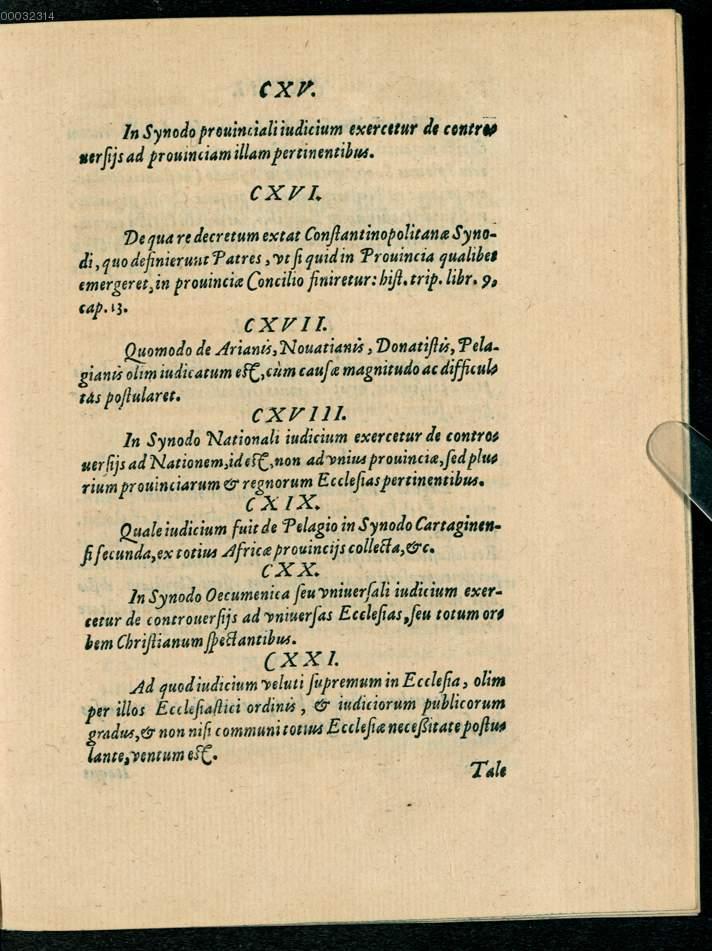 00032314
CXV.
In Synodo prouinciali iudicium exercetur de contro-
uersijs ad prouinciam illam pertinentibus.
CXVI.
De qua re decretum extat Constantinopolitanæ Syno-
di, quo definierunt Patres, vt si quid in Prouincia qualibet
emergeret, in prouinciæ Concilio finiretur: hist. trip. libr. 9,
cap. 13.
CXVII.
Quomodo de Arianis, Nouatianis, Donatistis, Pela-
gianis olim iudicatum est, cùm causæ magnitudo ac difficul-
tas postularet.
CXVIII.
In Synodo Nationali iudicium exercetur de contro-
uersijs ad Nationem, id est, non ad vnius prouinciæ, sed plu-
rium prouinciarum & regnorum Ecclesias pertinentibus.
CXIX.
Quale iudicium fuit de Pelagio in Synodo Cartaginen-
si secunda, ex totius Africæ prouincijs collecta, &c.
CXX.
In Synodo Oecumenica seu vniuersali iudicium exer-
cetur de controuersijs ad vniuersas Ecclesias, seu totum or-
bem Christianum spectantibus.
CXXI.
Ad quod iudicium veluti supremum in Ecclesia, olim
per illos Ecclesiastici ordinis, & iudiciorum publicorum
gradus, & non nisi communi totius Ecclesiæ necessitate postu-
lante, ventum est.
Tale